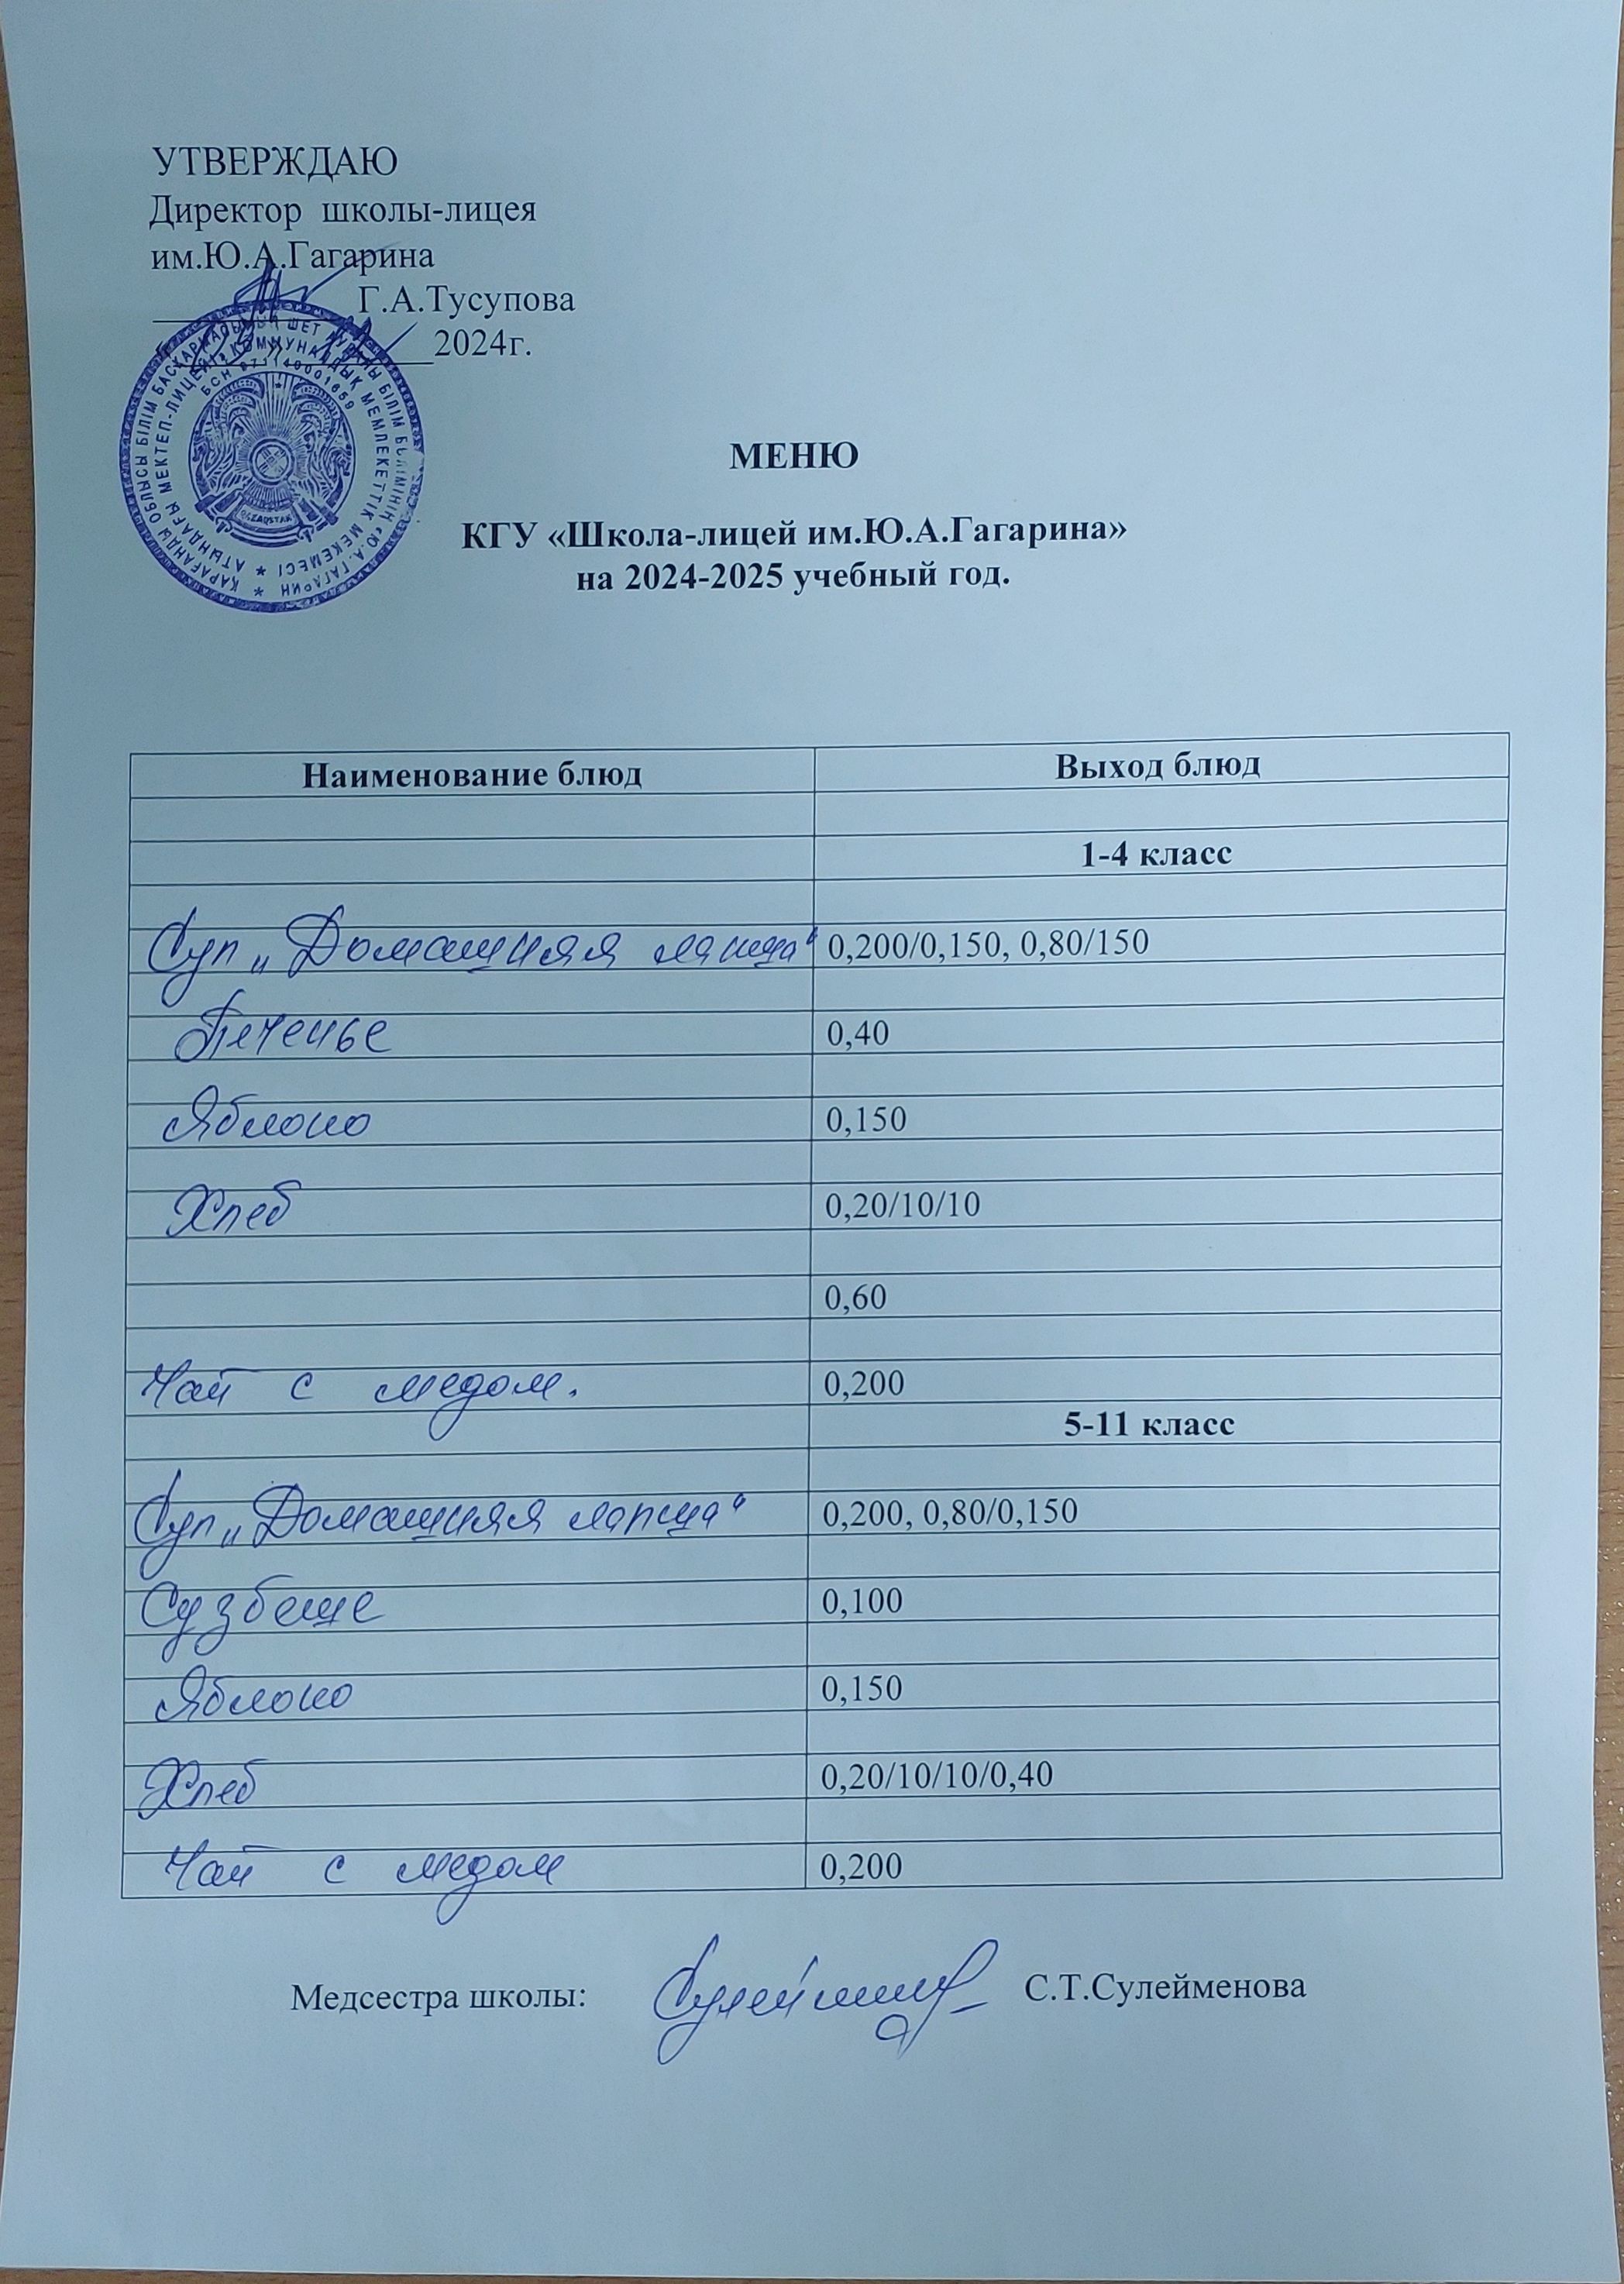 УТВЕРЖДАЮ
Директор школы-лицея
им.Ю.А.Гагарина
Г.А.Тусупова
2024г.
ҚАРАҒАНДЫ ОБЛЫСЫ БІЛІМ БАСҚАРМАСЫНЫҢ ШЕТ АУДАНЫ БІЛІМ БӨЛІМІНІҢ «Ю.А. ГАГАРИН
АТЫНДАҒЫ МЕКТЕП-ЛИЦЕЙІ» КОММУНАЛДЫҚ МЕМЛЕКЕТТІК МЕКЕМЕСІ
БСН 971140001659
QAZAQSTAN
МЕНЮ
КГУ «Школа-лицей им.Ю.А.Гагарина»
на 2024-2025 учебный год.
Наименование блюд Выход блюд
1-4 класс
Суп „Домашняя лапша“ 0,200/0,150, 0,80/150
Печенье 0,40
Яблоко 0,150
Хлеб 0,20/10/10
0,60
Чай с медом. 0,200
5-11 класс
Суп „Домашняя лапша“ 0,200, 0,80/0,150
Сузбеше 0,100
Яблоко 0,150
Хлеб 0,20/10/10/0,40
Чай с медом 0,200
Медсестра школы: С.Т.Сулейменова